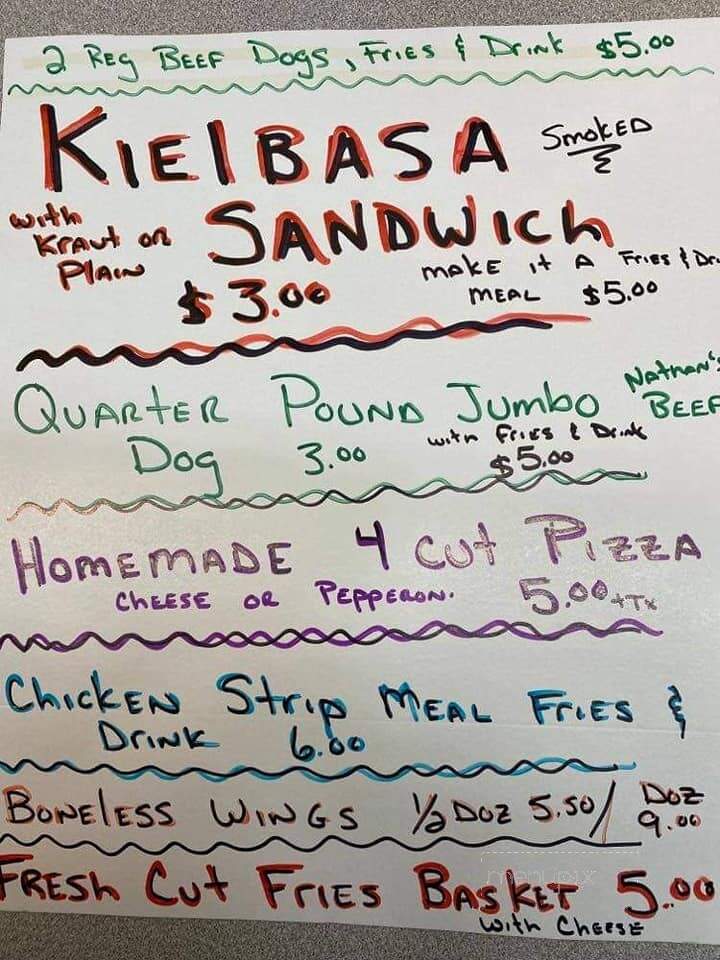 2 Reg Beef Dogs, Fries & Drink $5.00
Kielbasa Smoked
with Kraut or Plain
Sandwich
$3.00
make it a Fries & Dr
meal $5.00
Quarter Pound Jumbo Nathan's Beef
Dog 3.00 with Fries & Drink
$5.00
Homemade 4 cut Pizza
Cheese or Pepperoni. 5.00 + Tx
Chicken Strip Meal Fries &
Drink 6.00
Boneless Wings ½ Doz 5.50 / Doz 9.00
Fresh Cut Fries Basket 5.00
with Cheese
menupix